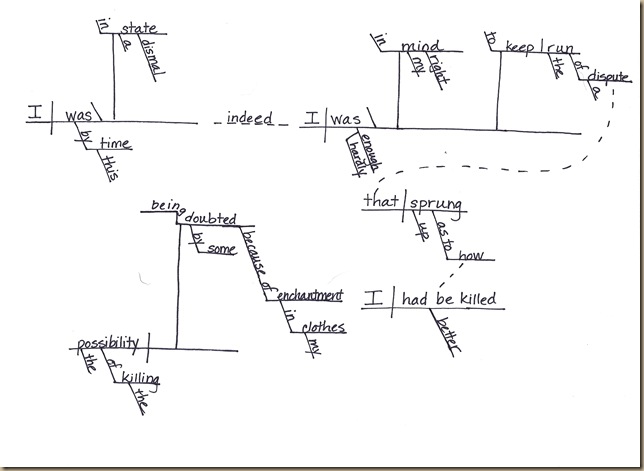 in state
a dismal
I was
by time
this
indeed
in mind
my right
to keep run
the of dispute
a
I was
enough
hardly
that sprung
up as to how
I had be killed
better
being
doubted
by some
because of enchantment
in clothes
my
possibility
the of killing
the